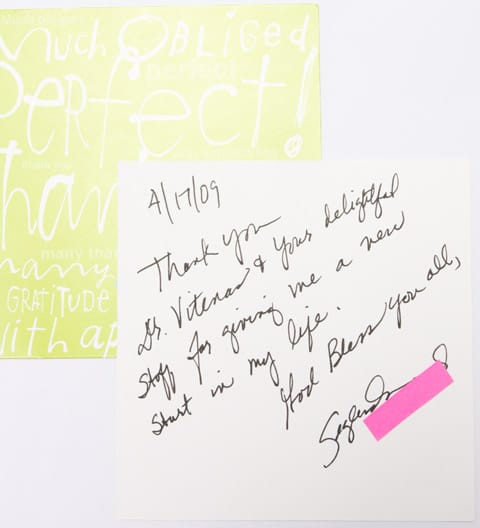 much obliged
Much Obliged,
perfect
Perfect!
many tha
many
Gratitude
with ap
4/17/09
Thank you
Dr. Vitenas & your delightful
staff for giving me a new
start in my life.
God Bless you all,